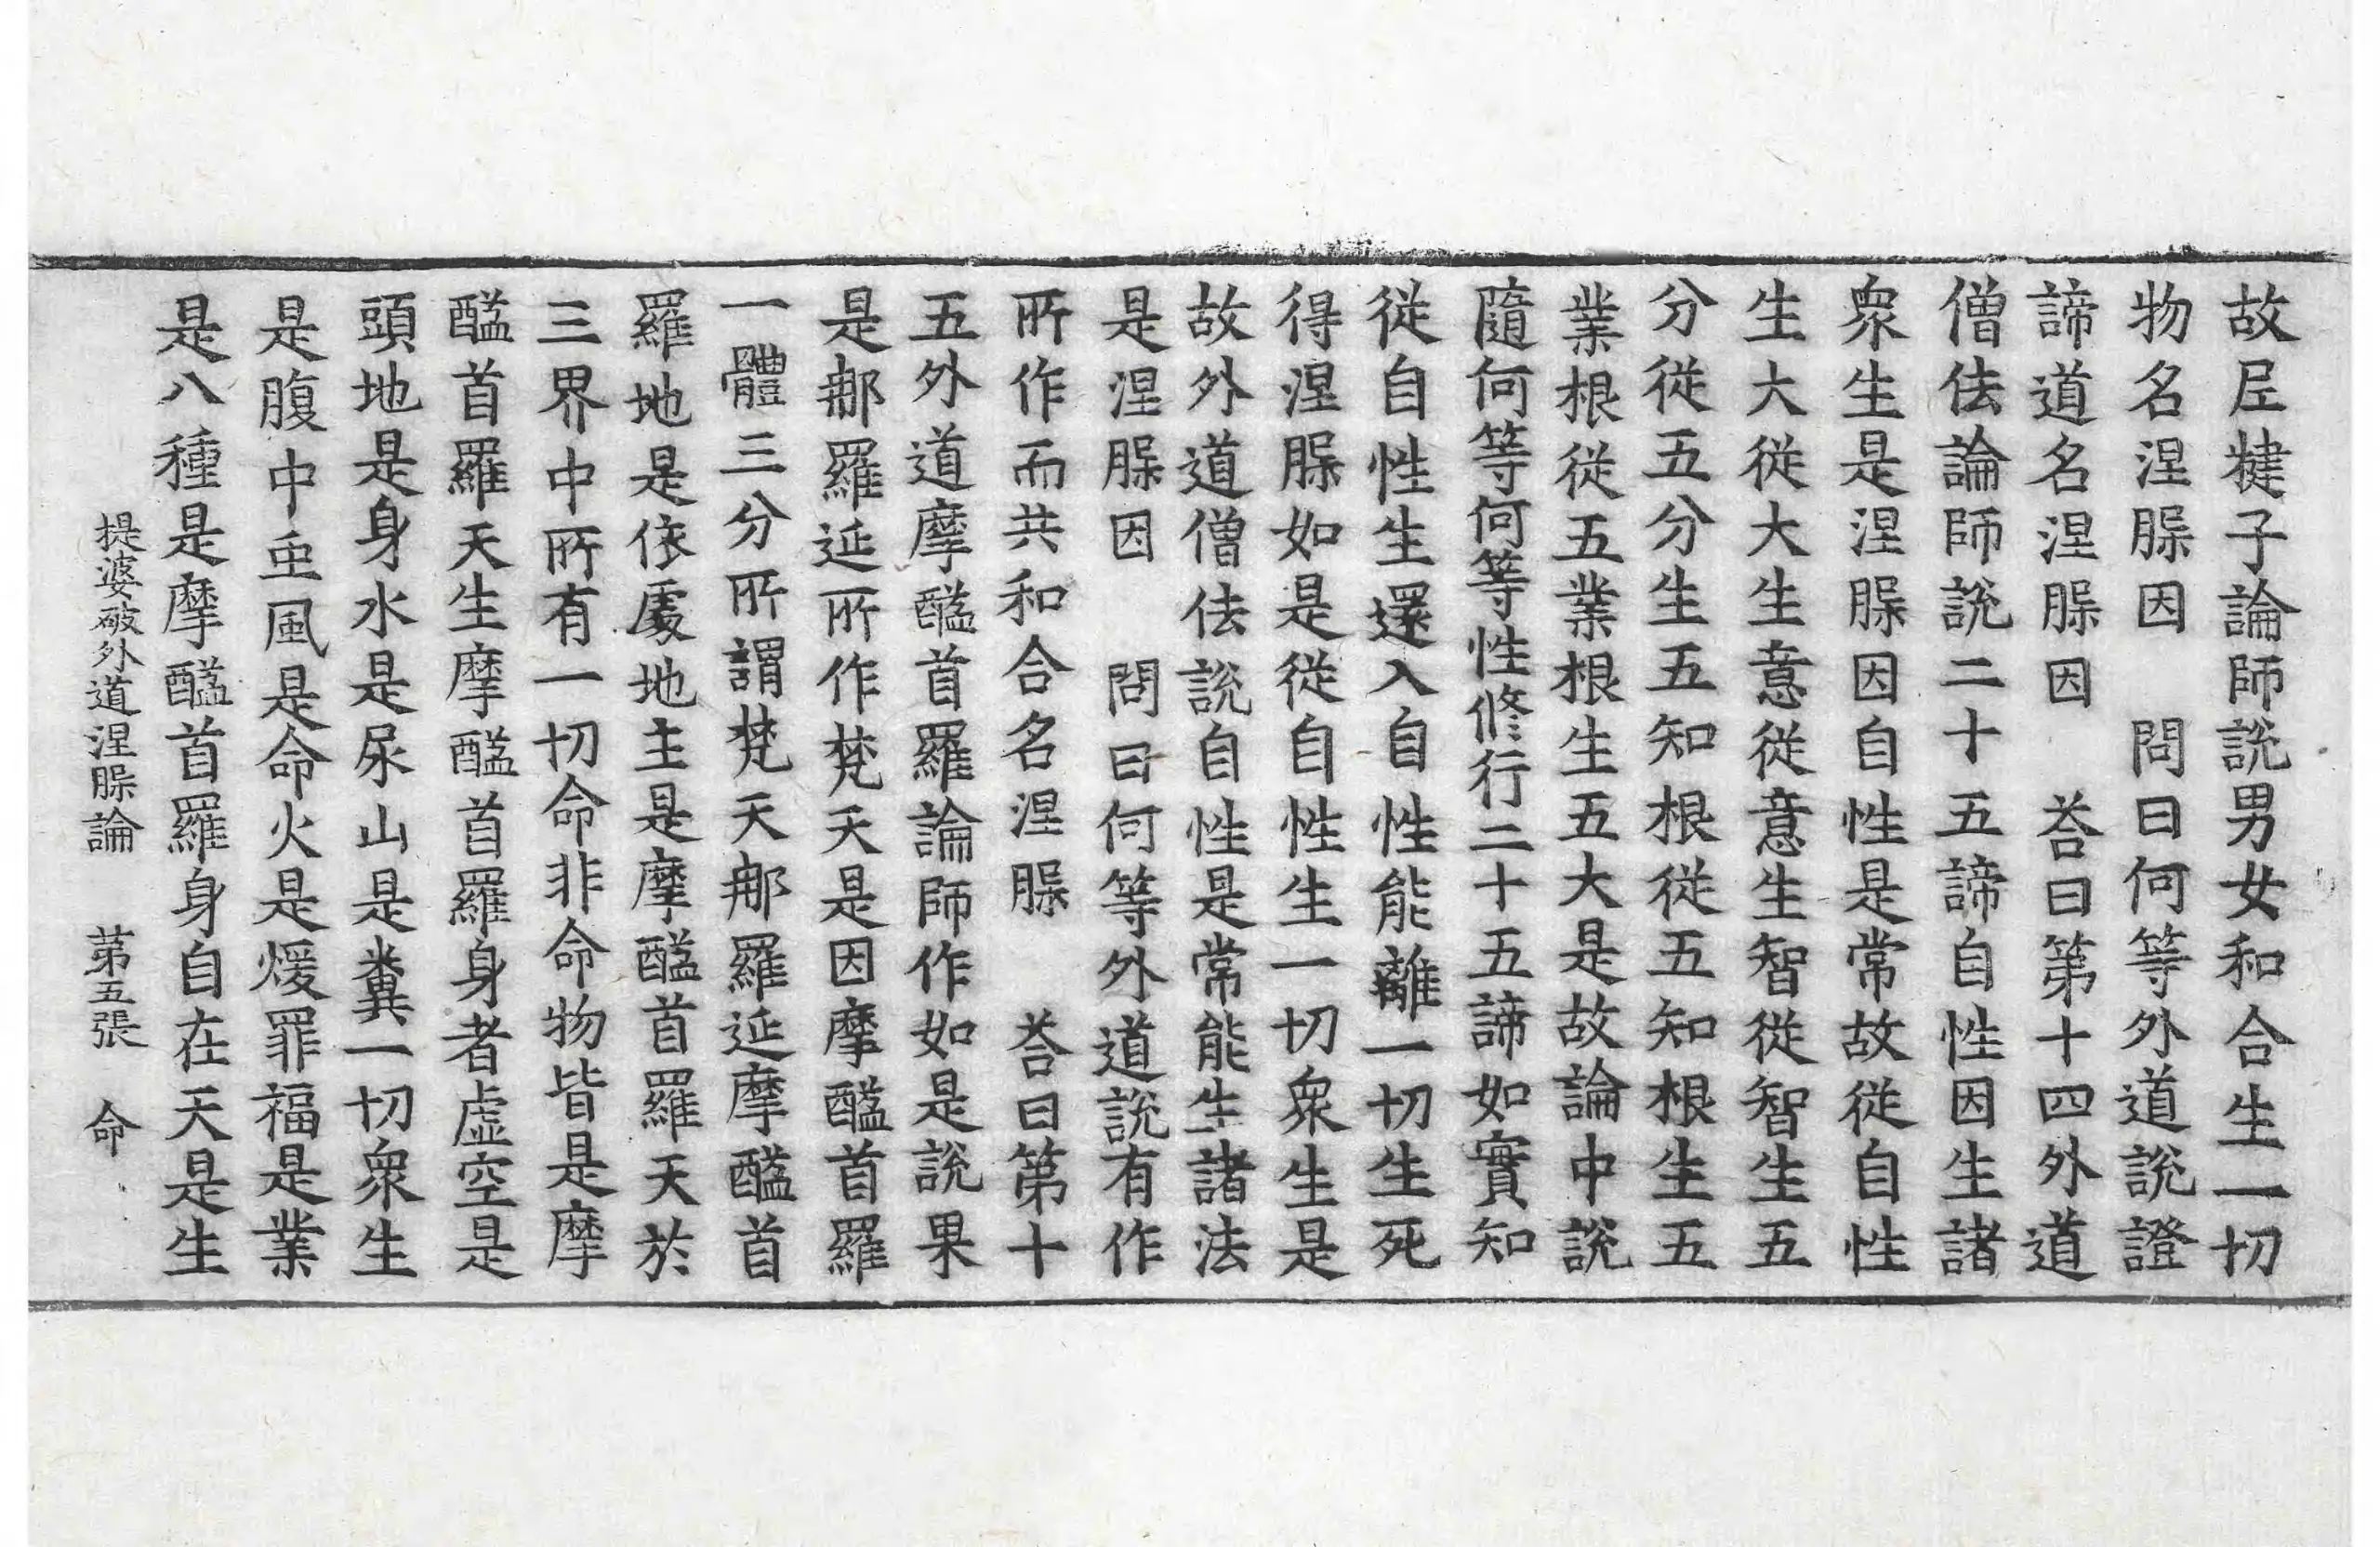 故𡰱犍子論師說男女和合生一切
物名涅脲因　問曰何等外道說證
諦道名涅脲因　荅曰第十四外道
僧佉論師說二十五諦自性因生諸
衆生是涅脲因自性是常故從自性
生大從大生意從意生智從智生五
分從五分生五知根從五知根生五
業根從五業根生五大是故論中說
隨何等何等性修行二十五諦如實知
從自性生還入自性能離一切生死
得涅脲如是從自性生一切衆生是
故外道僧佉說自性是常能生諸法
是涅脲因　問曰何等外道說有作
所作而共和合名涅脲　荅曰第十
五外道摩醯首羅論師作如是說果
是那羅延所作梵天是因摩醯首羅
一體三分所謂梵天那羅延摩醯首
羅地是依處地主是摩醯首羅天於
三界中所有一切命非命物皆是摩
醯首羅天生摩醯首羅身者虛空是
頭地是身水是尿山是糞一切衆生
是腹中虫風是命火是煖罪福是業
是八種是摩醯首羅身自在天是生
提婆破外道涅脲論　第五張　命